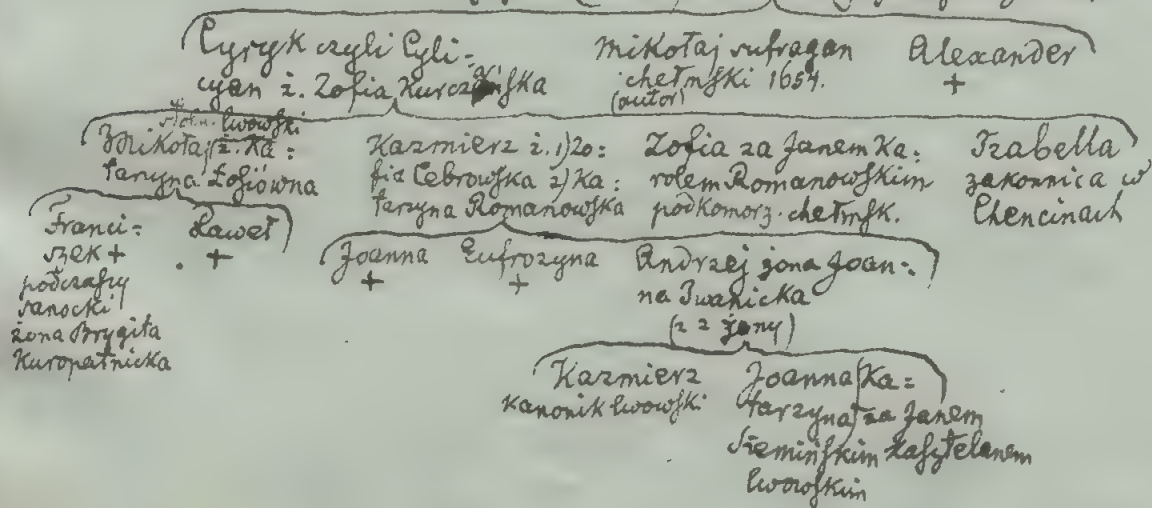 Cyryk czyli Cyli=
cyan ż. Zofia Kurczańska
Mikołaj sufragan
chełmski 1654.
(autor)
Alexander
+
lwowski
Mikołaj ż. Ka=
taryna Łosiówna
Kazmierz ż. 1) Zo=
fia Cebrowska 2) Ka=
tarzyna Romanowska
Zofia za Janem Ka=
rolem Romanowskim
podkomorz. chełmsk.
Izabella
zakonnica w
Chencinach
Franci=
szek +
podczaszy
sanocki
żona Brygita
Kuropatnicka
Paweł
+
Joanna
+
Eufrozyna
+
Andrzej żona Joan=
na Iwanicka
(z 2 żony)
Kazmierz
kanonik lwowski
Joanna Ka=
tarzyna za Janem
Siemińskim kasztelanem
lwowskim